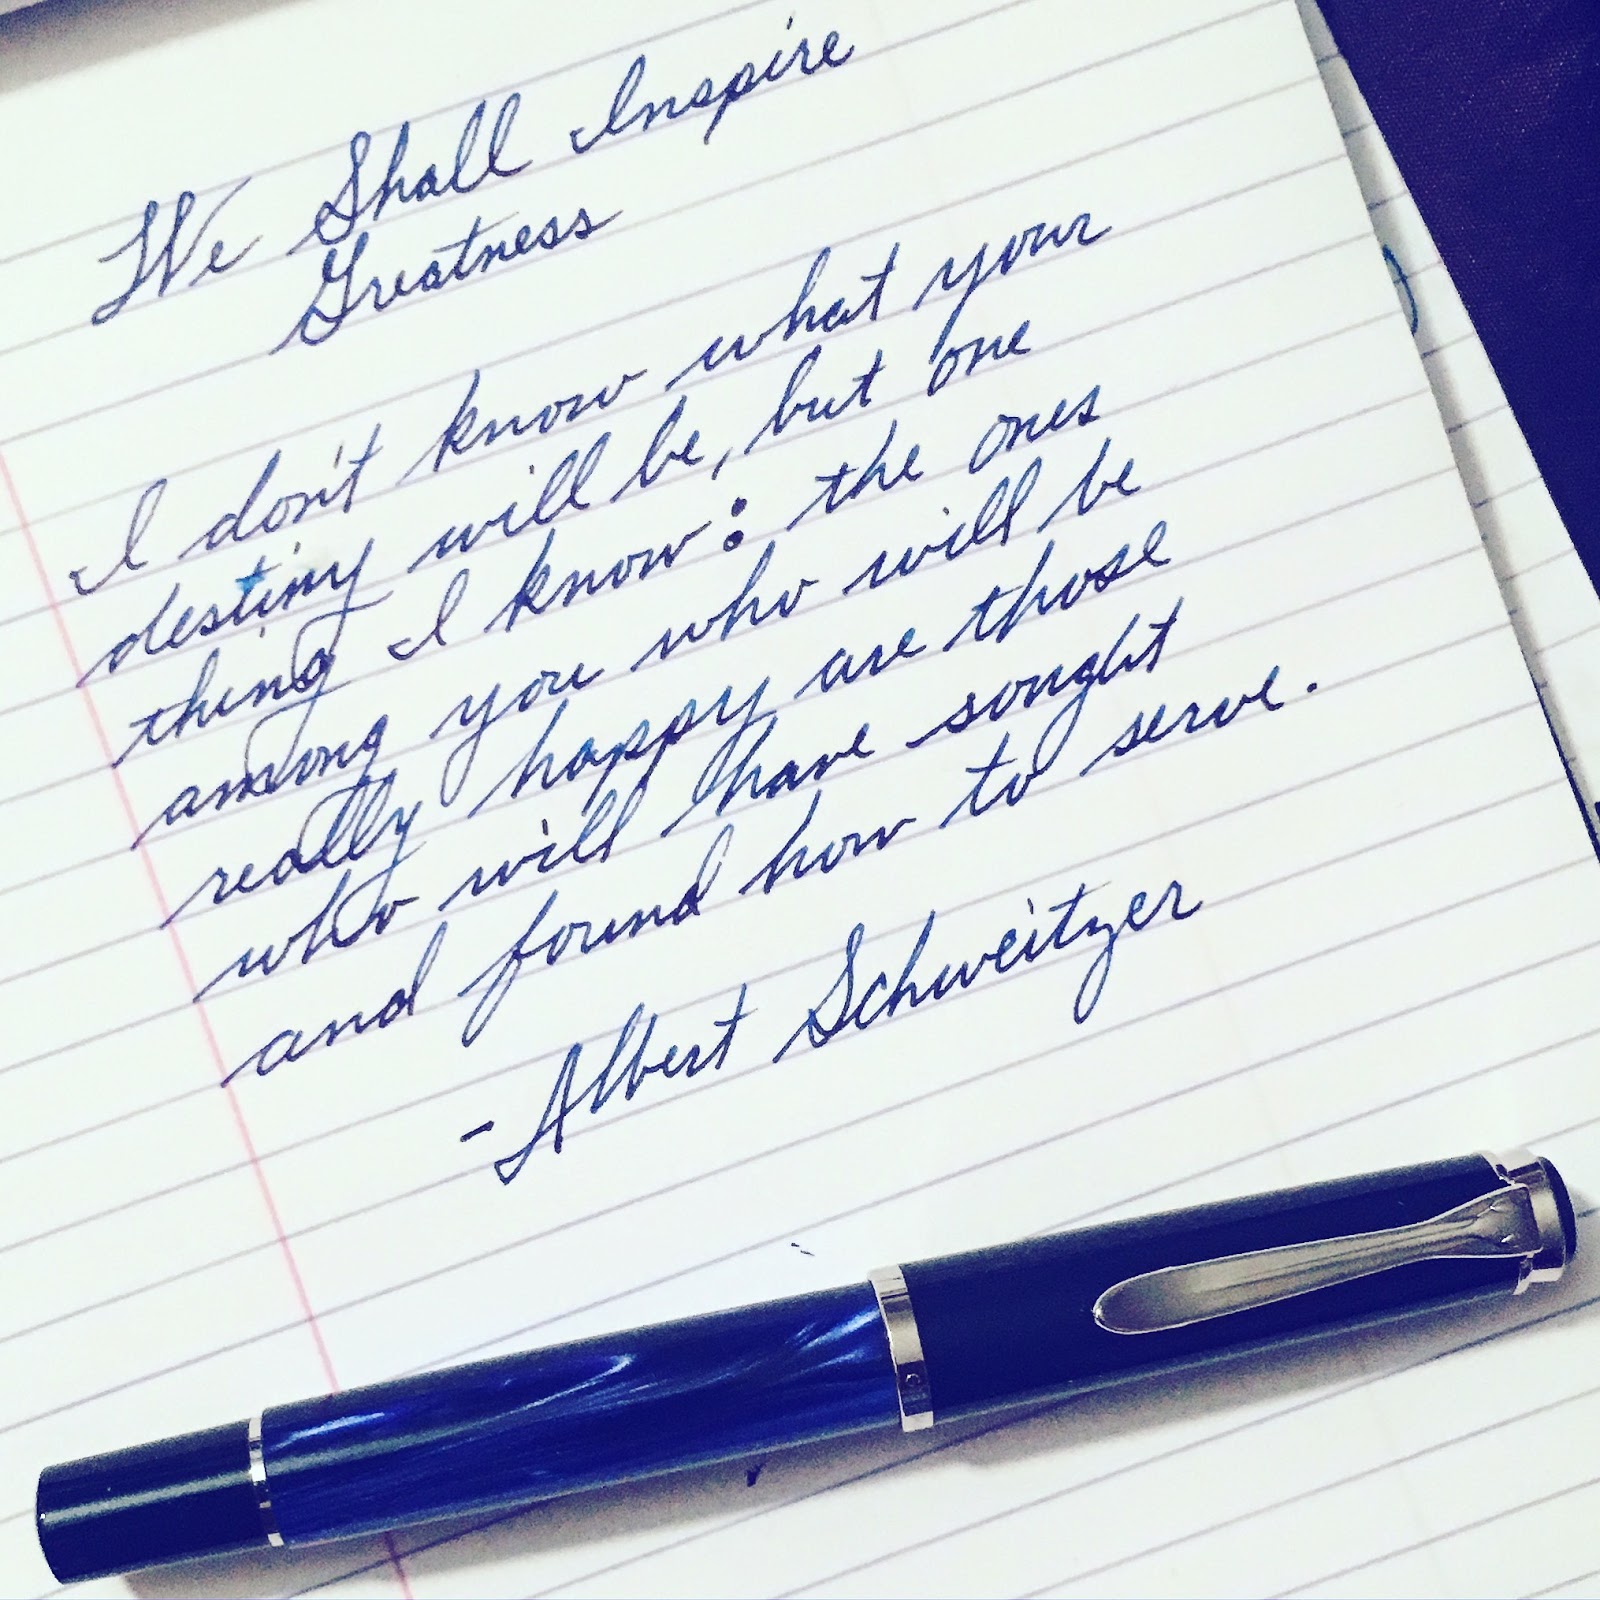 We Shall Inspire
Greatness
I don't know what your
destiny will be, but one
thing I know: the ones
among you who will be
really happy are those
who will have sought
and found how to serve.
- Albert Schweitzer